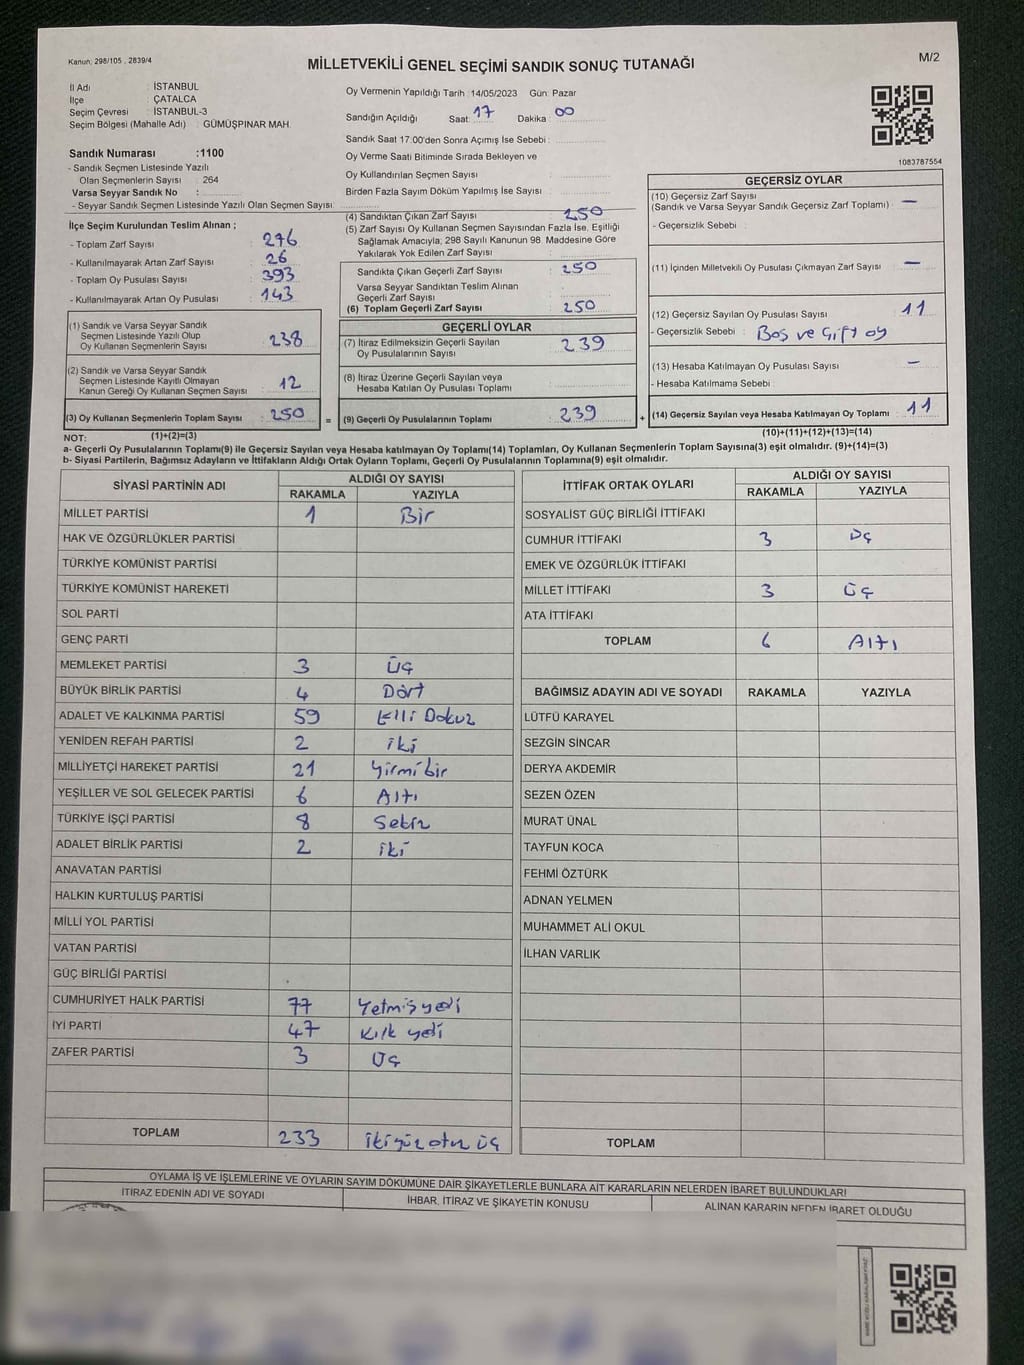 Kanun: 298/105 , 2839/4
MİLLETVEKİLİ GENEL SEÇİMİ SANDIK SONUÇ TUTANAĞI
M/2
İl Adı : İSTANBUL
İlçe : ÇATALCA
Seçim Çevresi : İSTANBUL-3
Seçim Bölgesi (Mahalle Adı) : GÜMÜŞPINAR MAH.
Sandık Numarası :1100
- Sandık Seçmen Listesinde Yazılı
Olan Seçmenlerin Sayısı : 264
Varsa Seyyar Sandık No :
- Seyyar Sandık Seçmen Listesinde Yazılı Olan Seçmen Sayısı:
Oy Vermenin Yapıldığı Tarih :14/05/2023 Gün: Pazar
Sandığın Açıldığı Saat: 17 Dakika : 00
Sandık Saat 17:00'den Sonra Açımış İse Sebebi :
Oy Verme Saati Bitiminde Sırada Bekleyen ve
Oy Kullandırılan Seçmen Sayısı :
Birden Fazla Sayım Döküm Yapılmış İse Sayısı :
1083787554
İlçe Seçim Kurulundan Teslim Alınan ;
- Toplam Zarf Sayısı : 276
- Kullanılmayarak Artan Zarf Sayısı : 26
- Toplam Oy Pusulası Sayısı : 393
- Kullanılmayarak Artan Oy Pusulası : 143
(1) Sandık ve Varsa Seyyar Sandık
Seçmen Listesinde Yazılı Olup
Oy Kullanan Seçmenlerin Sayısı : 238
(2) Sandık ve Varsa Seyyar Sandık
Seçmen Listesinde Kayıtlı Olmayan
Kanun Gereği Oy Kullanan Seçmen Sayısı : 12
(3) Oy Kullanan Seçmenlerin Toplam Sayısı : 250 =
(4) Sandıktan Çıkan Zarf Sayısı : 250
(5) Zarf Sayısı Oy Kullanan Seçmen Sayısından Fazla İse, Eşitliği
Sağlamak Amacıyla; 298 Sayılı Kanunun 98. Maddesine Göre
Yakılarak Yok Edilen Zarf Sayısı :
Sandıkta Çıkan Geçerli Zarf Sayısı : 250
Varsa Seyyar Sandıktan Teslim Alınan
Geçerli Zarf Sayısı :
(6) Toplam Geçerli Zarf Sayısı : 250
GEÇERLİ OYLAR
(7) İtiraz Edilmeksizin Geçerli Sayılan
Oy Pusulalarının Sayısı : 239
(8) İtiraz Üzerine Geçerli Sayılan veya
Hesaba Katılan Oy Pusulası Toplamı :
(9) Geçerli Oy Pusulalarının Toplamı : 239 +
GEÇERSİZ OYLAR
(10) Geçersiz Zarf Sayısı
(Sandık ve Varsa Seyyar Sandık Geçersiz Zarf Toplamı) : —
- Geçersizlik Sebebi :
(11) İçinden Milletvekili Oy Pusulası Çıkmayan Zarf Sayısı : —
(12) Geçersiz Sayılan Oy Pusulası Sayısı : 11
- Geçersizlik Sebebi : Boş ve Çift oy
(13) Hesaba Katılmayan Oy Pusulası Sayısı : —
- Hesaba Katılmama Sebebi :
(14) Geçersiz Sayılan veya Hesaba Katılmayan Oy Toplamı : 11
NOT: (1)+(2)=(3)
(10)+(11)+(12)+(13)=(14)
a- Geçerli Oy Pusulasının Toplamı(9) ile Geçersiz Sayılan veya Hesaba katılmayan Oy Toplamı(14) Toplamları, Oy Kullanan Seçmenlerin Toplam Sayısına(3) eşit olmalıdır. (9)+(14)=(3)
b- Siyasi Partilerin, Bağımsız Adayların ve İttifakların Aldığı Ortak Oyların Toplamı, Geçerli Oy Pusulalarının Toplamına(9) eşit olmalıdır.
SİYASİ PARTİNİN ADI ALDIĞI OY SAYISI
RAKAMLA YAZIYLA
MİLLET PARTİSİ 1 Bir
HAK VE ÖZGÜRLÜKLER PARTİSİ
TÜRKİYE KOMÜNİST PARTİSİ
TÜRKİYE KOMÜNİST HAREKETİ
SOL PARTİ
GENÇ PARTİ
MEMLEKET PARTİSİ 3 üç
BÜYÜK BİRLİK PARTİSİ 4 Dört
ADALET VE KALKINMA PARTİSİ 59 Elli Dokuz
YENİDEN REFAH PARTİSİ 2 iki
MİLLİYETÇİ HAREKET PARTİSİ 21 Yirmi bir
YEŞİLLER VE SOL GELECEK PARTİSİ 6 Altı
TÜRKİYE İŞÇİ PARTİSİ 8 Sekiz
ADALET BİRLİK PARTİSİ 2 iki
ANAVATAN PARTİSİ
HALKIN KURTULUŞ PARTİSİ
MİLLİ YOL PARTİSİ
VATAN PARTİSİ
GÜÇ BİRLİĞİ PARTİSİ
CUMHURİYET HALK PARTİSİ 77 Yetmiş yedi
İYİ PARTİ 47 Kırk yedi
ZAFER PARTİSİ 3 Üç
TOPLAM 233 iki yüz otuz üç
İTTİFAK ORTAK OYLARI ALDIĞI OY SAYISI
RAKAMLA YAZIYLA
SOSYALİST GÜÇ BİRLİĞİ İTTİFAKI
CUMHUR İTTİFAKI 3 Üç
EMEK VE ÖZGÜRLÜK İTTİFAKI
MİLLET İTTİFAKI 3 Üç
ATA İTTİFAKI
TOPLAM 6 Altı
BAĞIMSIZ ADAYIN ADI VE SOYADI RAKAMLA YAZIYLA
LÜTFÜ KARAYEL
SEZGİN SİNCAR
DERYA AKDEMİR
SEZEN ÖZEN
MURAT ÜNAL
TAYFUN KOCA
FEHMİ ÖZTÜRK
ADNAN YELMEN
MUHAMMET ALİ OKUL
İLHAN VARLIK
TOPLAM
OYLAMA İŞ VE İŞLEMLERİNE VE OYLARIN SAYIM DÖKÜMÜNE DAİR ŞİKAYETLERLE BUNLARA AİT KARARLARIN NELERDEN İBARET BULUNDUKLARI
İTİRAZ EDENİN ADI VE SOYADI İHBAR, İTİRAZ VE ŞİKAYETİN KONUSU ALINAN KARARIN NEDEN İBARET OLDUĞU